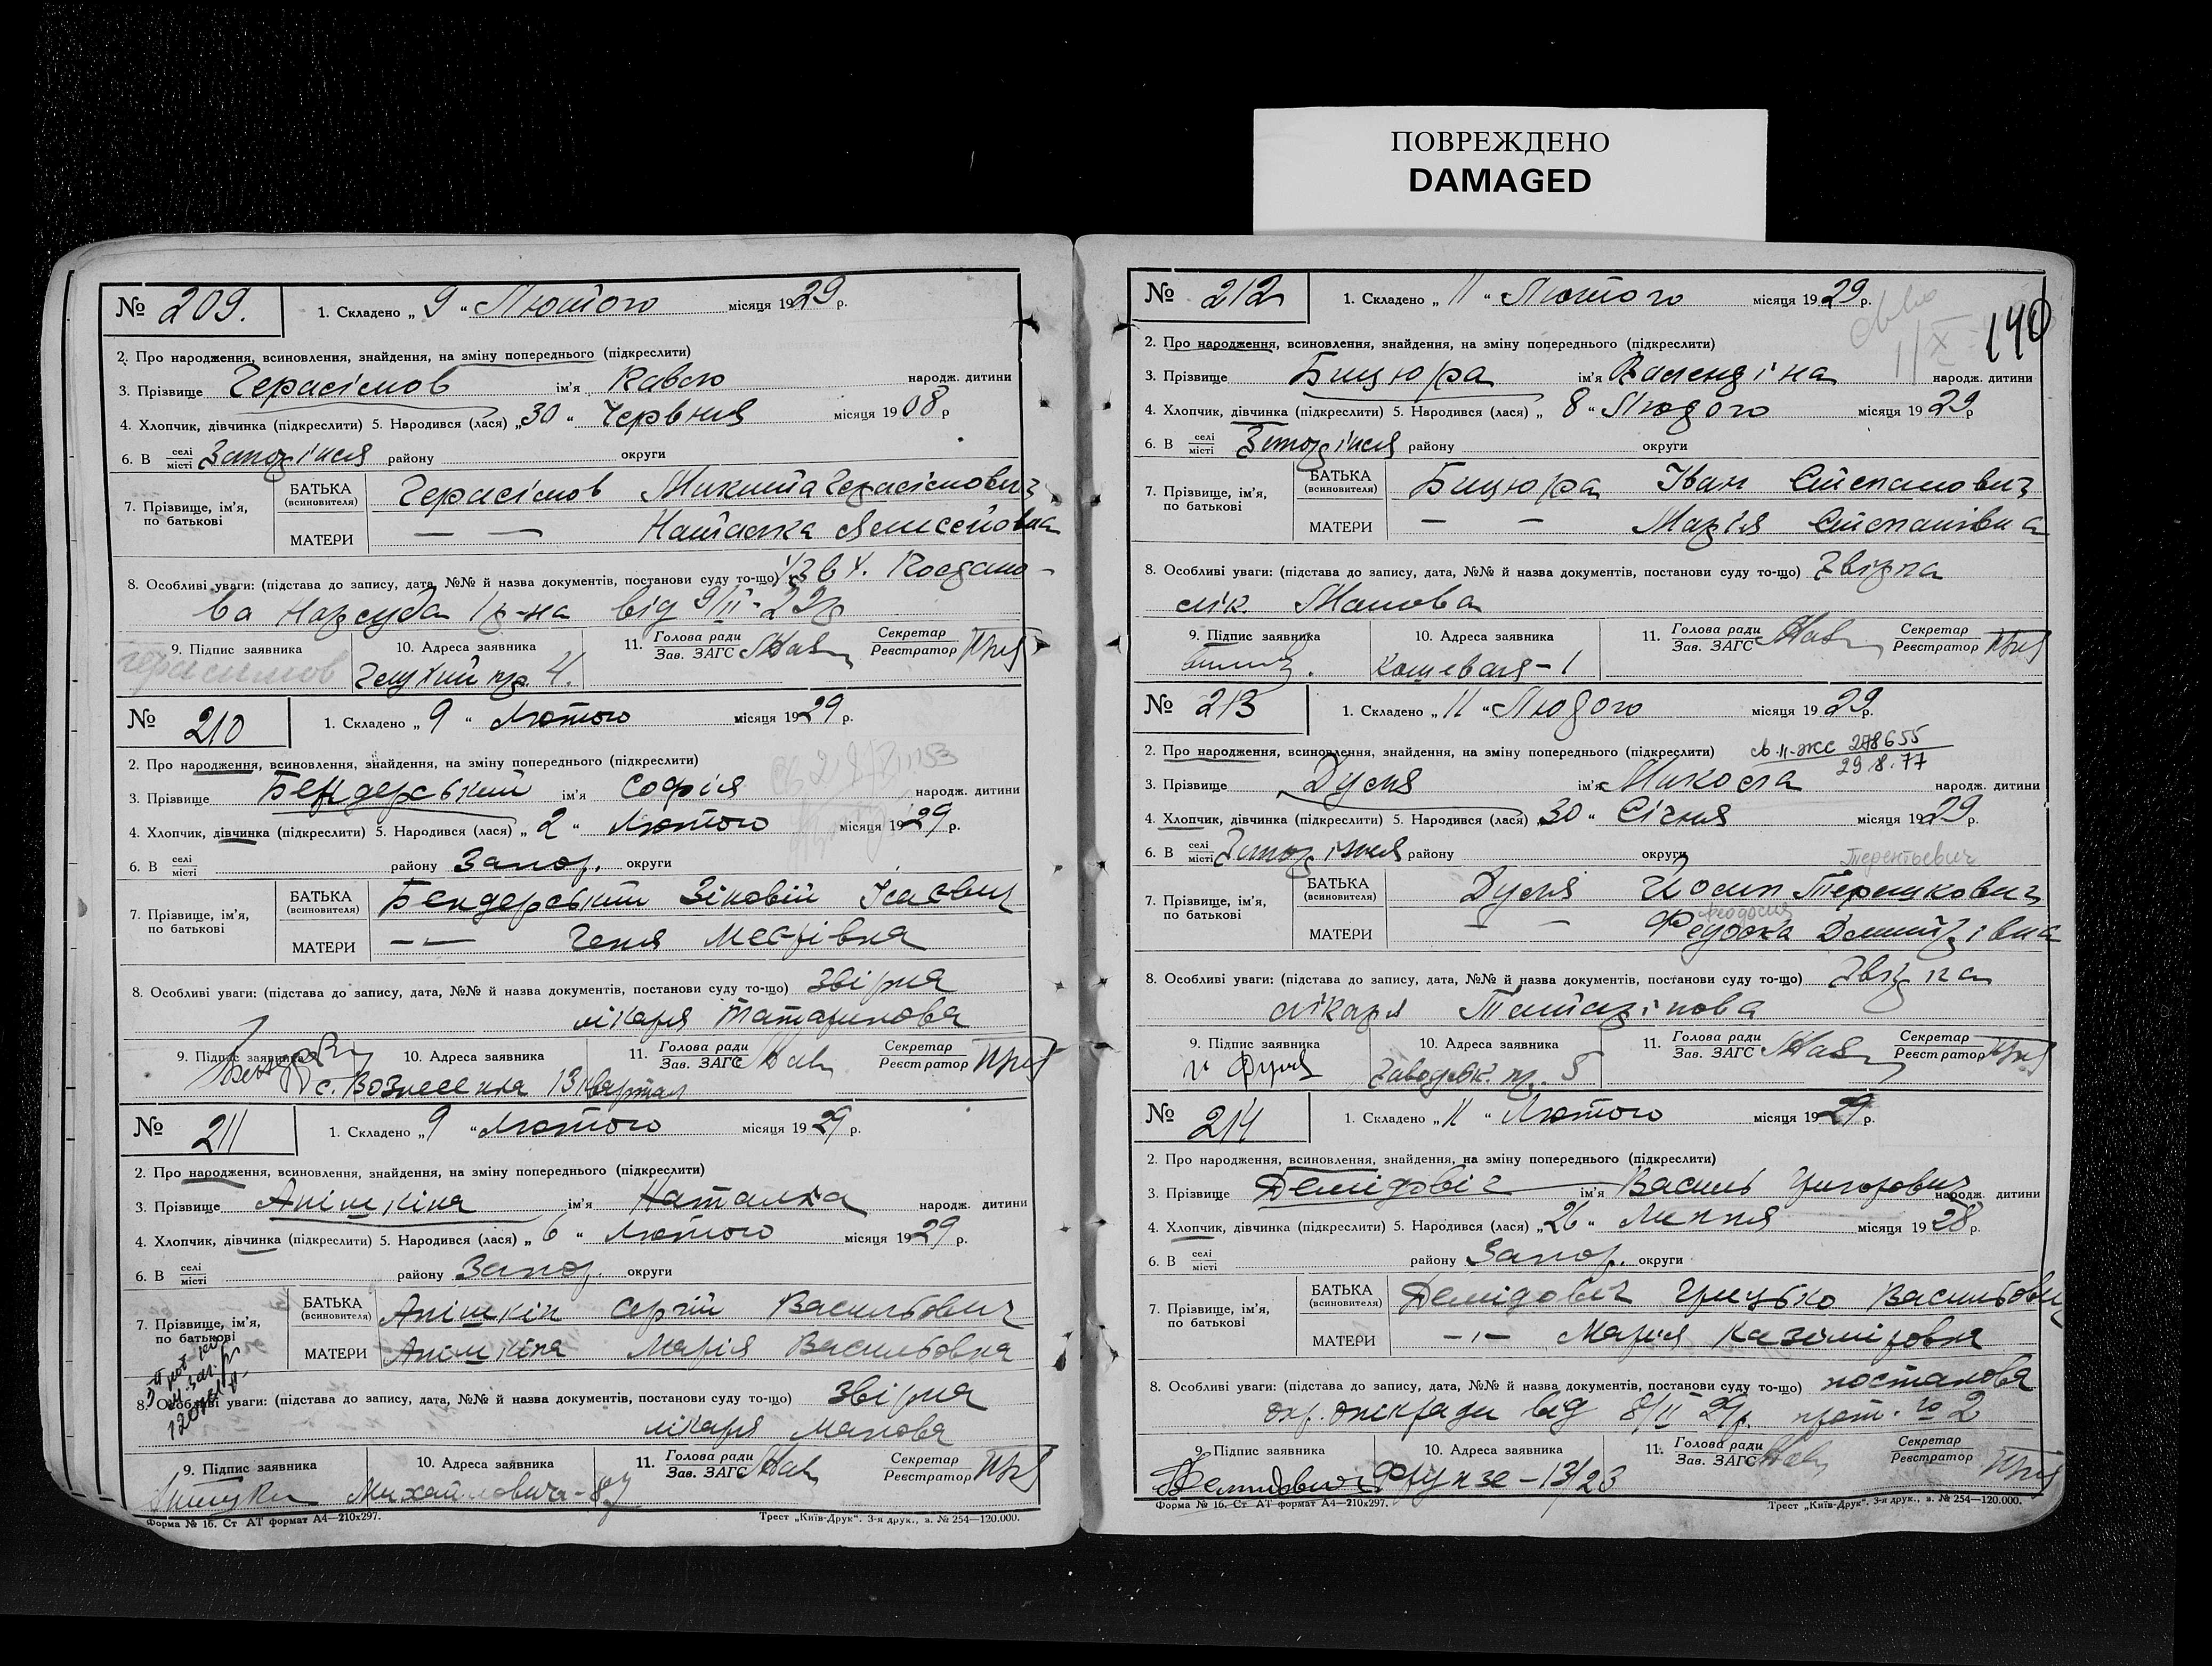 ПОВРЕЖДЕНО
DAMAGED
№ 209.
1. Складено „ 9 “ Лютого місяця 1929 р.
2. Про народження, всиновлення, знайдення, на зміну попереднього (підкреслити)
3. Прізвище Герасімов ім’я народж. дитини
4. Хлопчик, дівчинка (підкреслити) 5. Народився (лася) „ 30 “ Червня місяця 1908 р
6. В селі/місті Запоріжжя району округи
7. Прізвище, ім’я, по батькові
БАТЬКА (всиновителя) Герасімов Микита Герасімович
МАТЕРИ — —
8. Особливі уваги: (підстава до запису, дата, №№ й назва документів, постанови суду то-що)
Нарсуда від 9/II-29р
9. Підпис заявника 10. Адреса заявника 11. Голова ради/Зав. ЗАГС Секретар/Реєстратор
Герасимов 4.
№ 210
1. Складено „ 9 “ Лютого місяця 1929 р.
2. Про народження, всиновлення, знайдення, на зміну попереднього (підкреслити)
3. Прізвище Бендерський ім’я Софія народж. дитини
4. Хлопчик, дівчинка (підкреслити) 5. Народився (лася) „ 2 “ Лютого місяця 1929 р.
6. В селі/місті району Запор. округи
7. Прізвище, ім’я, по батькові
БАТЬКА (всиновителя) Бендерський Зіновій Ісаєвич
МАТЕРИ — — Геня
8. Особливі уваги: (підстава до запису, дата, №№ й назва документів, постанови суду то-що) Звірка
лікаря Татаринова
9. Підпис заявника 10. Адреса заявника 11. Голова ради/Зав. ЗАГС Секретар/Реєстратор
с. Вознесенка 13 квартал
№ 211
1. Складено „ 9 “ Лютого місяця 1929 р.
2. Про народження, всиновлення, знайдення, на зміну попереднього (підкреслити)
3. Прізвище Анішкіна ім’я Наталка народж. дитини
4. Хлопчик, дівчинка (підкреслити) 5. Народився (лася) „ 6 “ Лютого місяця 1929 р.
6. В селі/місті району Запор. округи
7. Прізвище, ім’я, по батькові
БАТЬКА (всиновителя) Анішкін Сергій Васильович
МАТЕРИ Анішкіна Марія Васильовна
8. Особливі уваги: (підстава до запису, дата, №№ й назва документів, постанови суду то-що) Звірка
лікаря Манова
9. Підпис заявника 10. Адреса заявника 11. Голова ради/Зав. ЗАГС Секретар/Реєстратор
Михайловича-87
Форма № 16. Ст АТ формат А4—210x297. Трест „Київ-Друк“. 3-я друк., з. № 254—120.000.
140
№ 212
1. Складено „ 11 “ Лютого місяця 1929 р.
2. Про народження, всиновлення, знайдення, на зміну попереднього (підкреслити)
3. Прізвище Бицюра ім’я Валендіна народж. дитини
4. Хлопчик, дівчинка (підкреслити) 5. Народився (лася) „ 8 “ Людого місяця 1929 р
6. В селі/місті Запоріжжя району округи
7. Прізвище, ім’я, по батькові
БАТЬКА (всиновителя) Бицюра Іван Степанович
МАТЕРИ — — Марія Степанівна
8. Особливі уваги: (підстава до запису, дата, №№ й назва документів, постанови суду то-що) Звірка
лік. Манова
9. Підпис заявника 10. Адреса заявника 11. Голова ради/Зав. ЗАГС Секретар/Реєстратор
Кошевая-1
№ 213
1. Складено „ 11 “ Людого місяця 1929 р.
2. Про народження, всиновлення, знайдення, на зміну попереднього (підкреслити)
278655
29.8.77
3. Прізвище Дуля ім’я Микола народж. дитини
4. Хлопчик, дівчинка (підкреслити) 5. Народився (лася) „ 30 “ Січня місяця 1929 р.
6. В селі/місті Запоріжжя району округи
Терентьевич
7. Прізвище, ім’я, по батькові
БАТЬКА (всиновителя) Дуля Йосип Терешкович
Феодосия
МАТЕРИ — — Федоска Дмитрівна
8. Особливі уваги: (підстава до запису, дата, №№ й назва документів, постанови суду то-що) Звірка
лікаря Татарінова
9. Підпис заявника 10. Адреса заявника 11. Голова ради/Зав. ЗАГС Секретар/Реєстратор
Заводськ. 5
№ 214
1. Складено „ 11 “ Лютого місяця 1929 р.
2. Про народження, всиновлення, знайдення, на зміну попереднього (підкреслити)
3. Прізвище Демідовіч ім’я Василь Григорович народж. дитини
4. Хлопчик, дівчинка (підкреслити) 5. Народився (лася) „ 26 “ Липня місяця 1928 р.
6. В селі/місті району Запор. округи
7. Прізвище, ім’я, по батькові
БАТЬКА (всиновителя) Демідовіч Грицько Васильович
МАТЕРИ — — Марія Казіміровна
8. Особливі уваги: (підстава до запису, дата, №№ й назва документів, постанови суду то-що) постанова
окр. опікради від 8/II 29р. прот. № 2
9. Підпис заявника 10. Адреса заявника 11. Голова ради/Зав. ЗАГС Секретар/Реєстратор
Демидович Фрунзе-13/23
Форма № 16. Ст АТ формат А4—210x297. Трест „Київ-Друк“. 3-я друк., з. № 254—120.000.